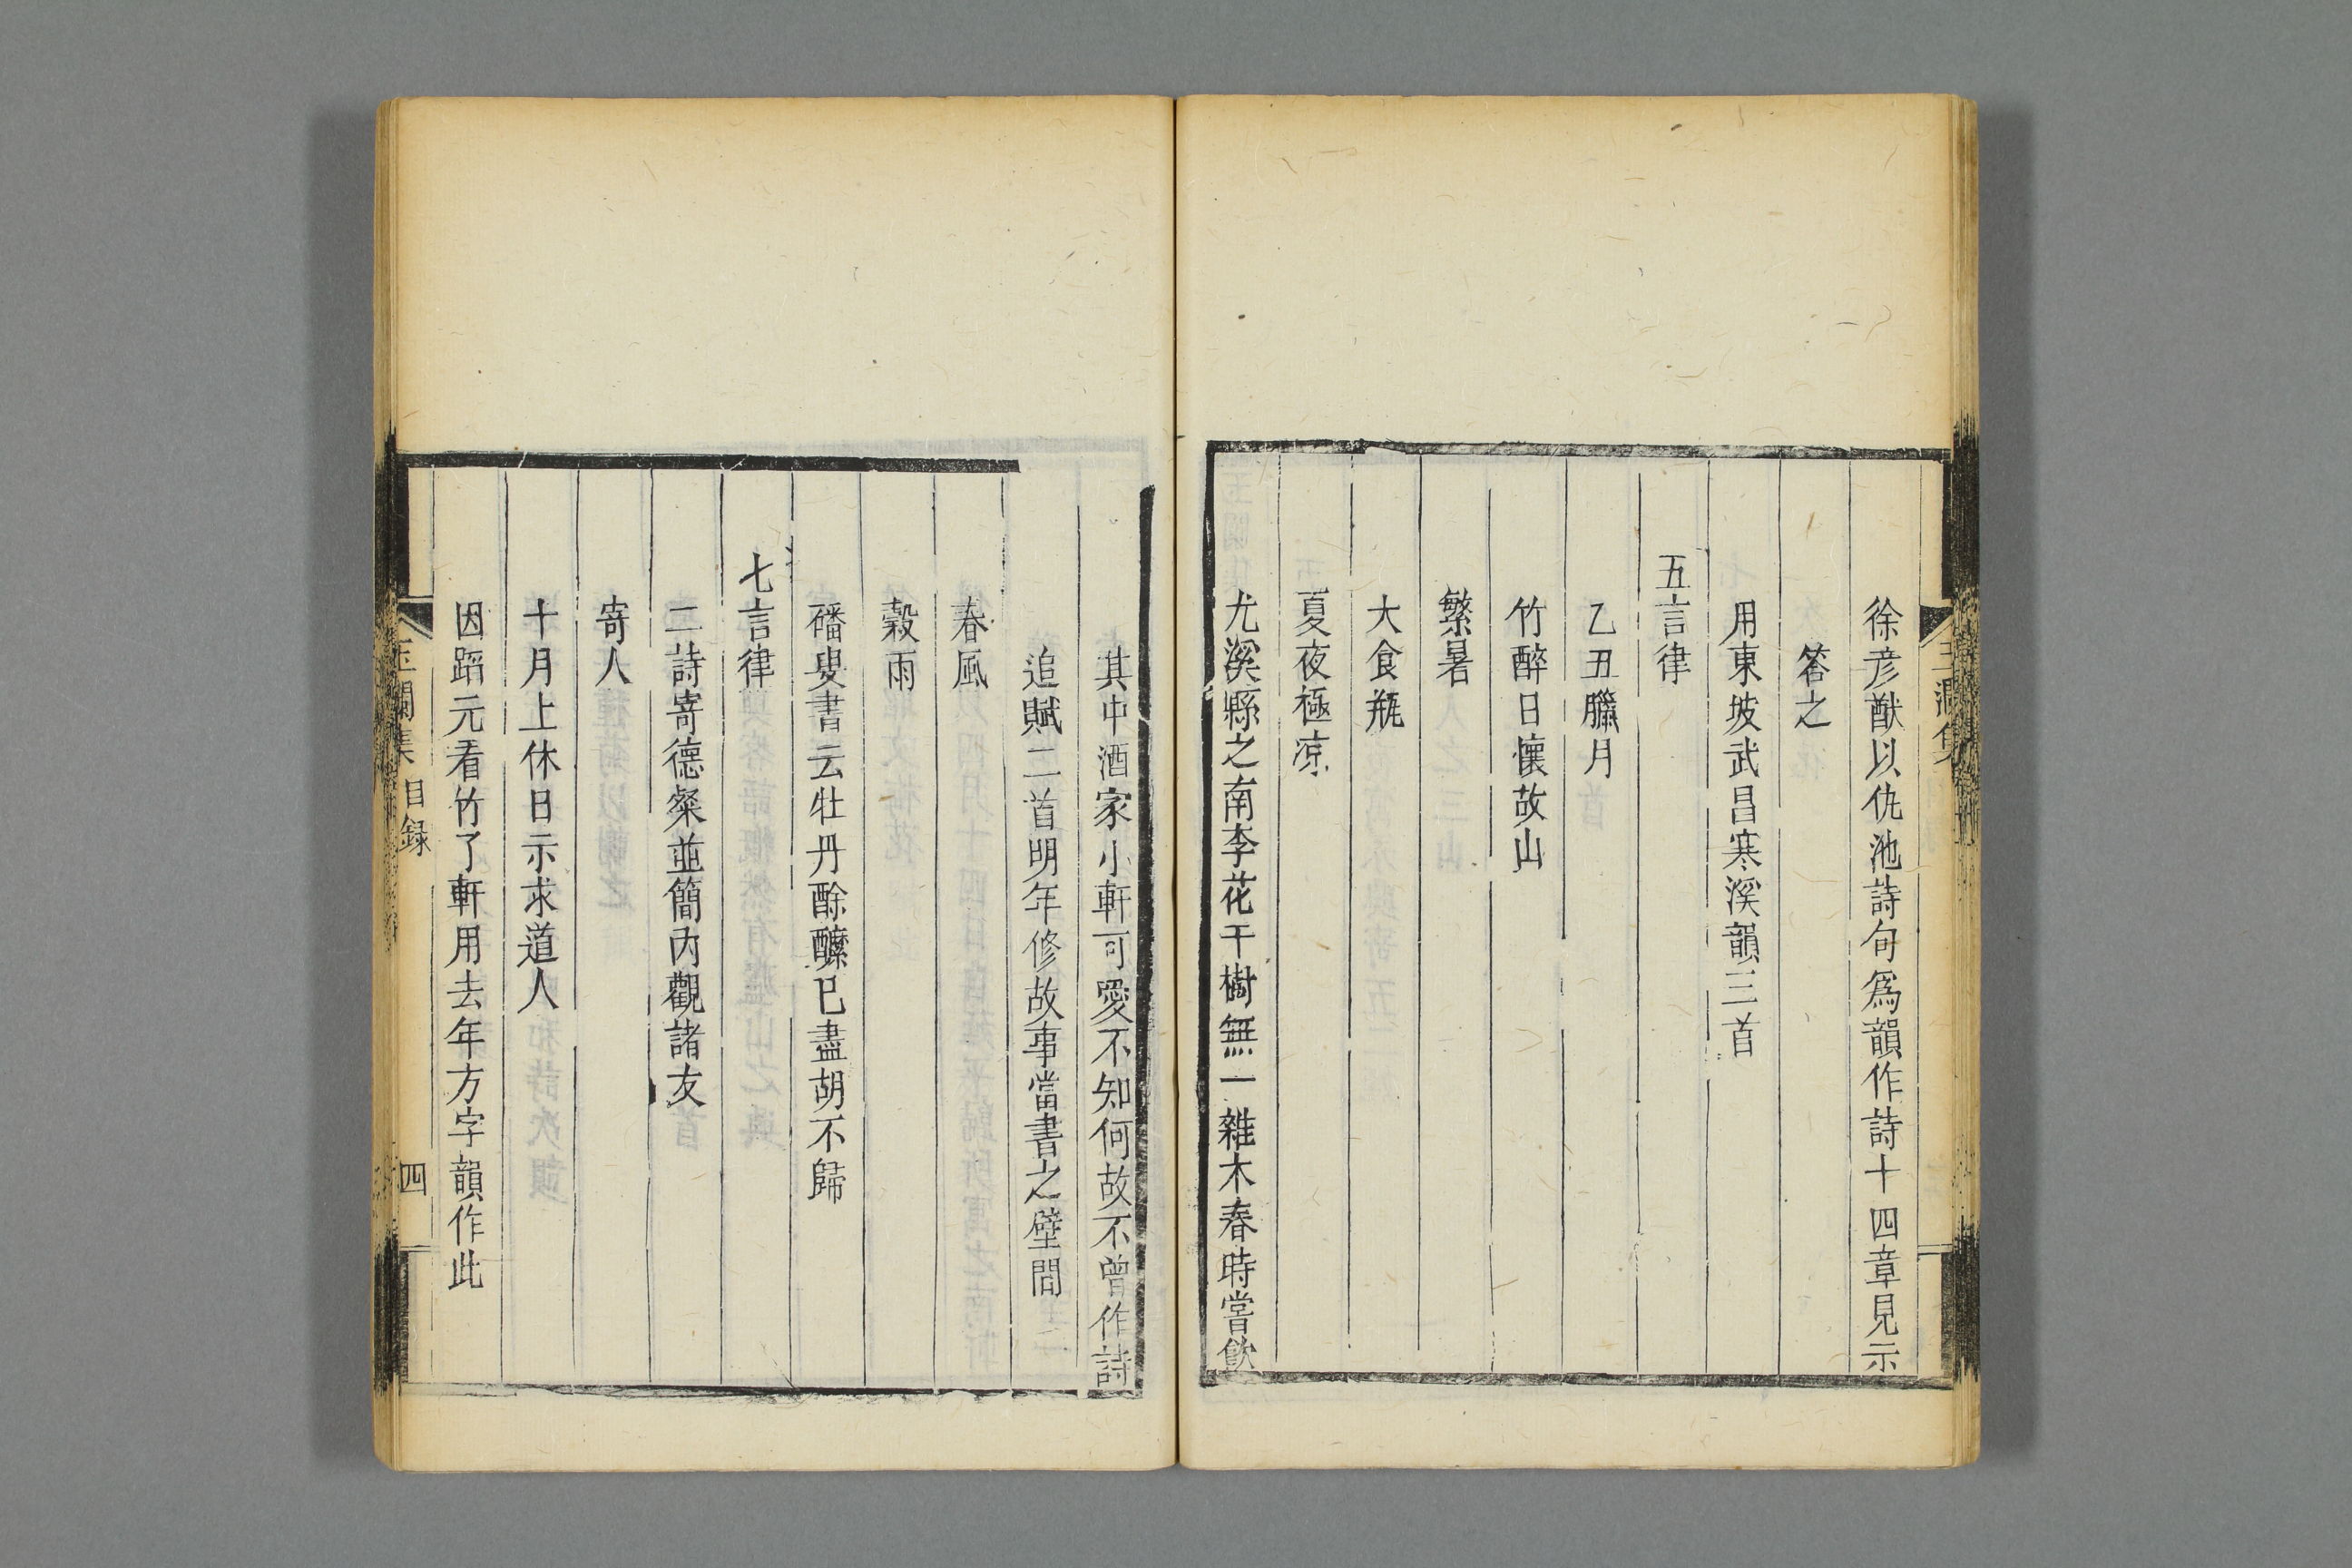 徐彥猷以仇池詩句爲韻作詩十四章見示
答之
用東坡武昌寒溪韻三首
五言律
乙丑臘月
竹醉日懷故山
繁暑
大食瓶
夏夜極凉
尤溪縣之南李花千樹無一雜木春時嘗飲
其中酒家小軒可愛不知何故不曾作詩
追賦二首明年修故事當書之壁間
春風
穀雨
磻叟書云牡丹酴醾已盡胡不歸
七言律
二詩寄德粲並簡内觀諸友
寄人
十月上休日示求道人
因蹈元看竹了軒用去年方字韻作此
玉瀾集 目録 四
玉瀾集